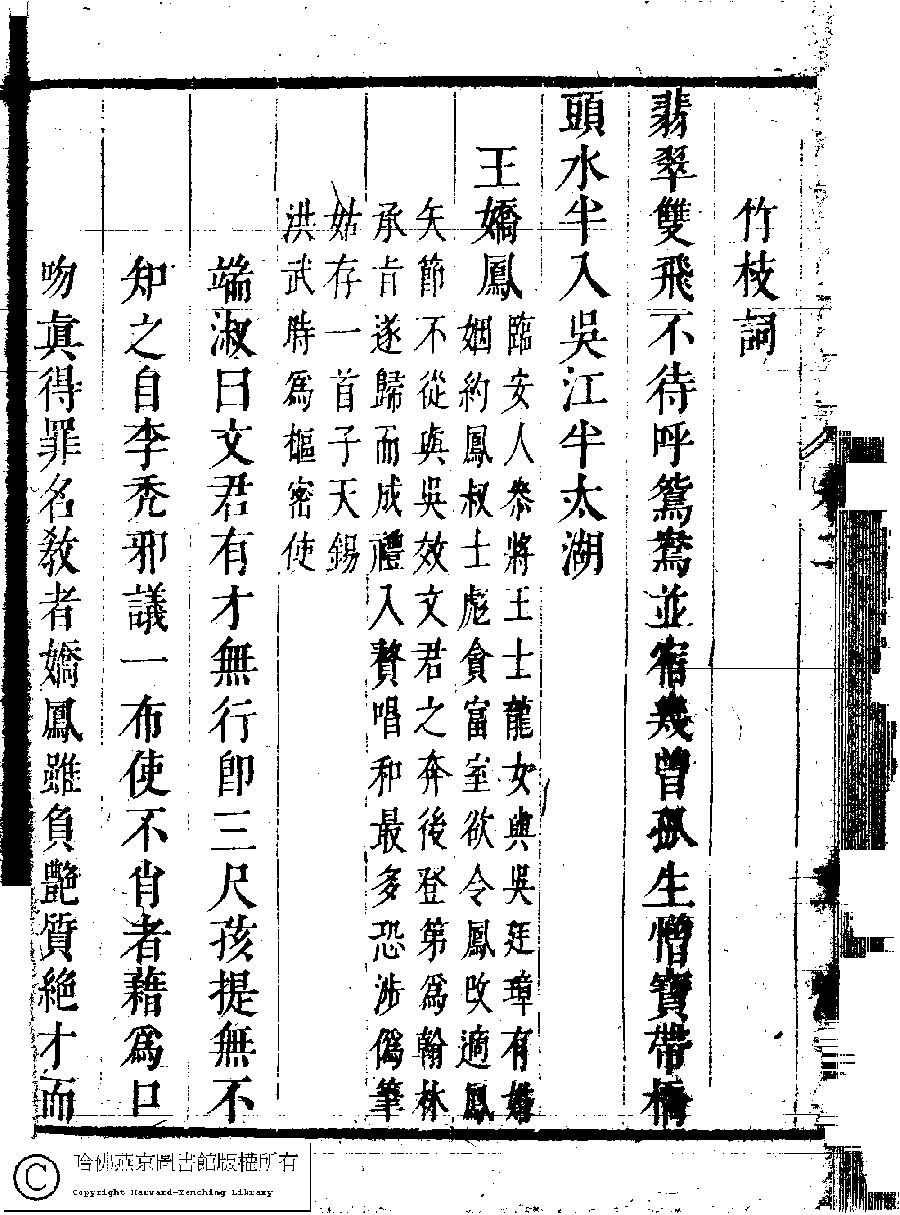 竹枝詞
翡翠雙飛不待呼鴛鴦並宿幾曾孤生憎寶帶橋
頭水半入吳江半太湖
王嬌鳳
臨安人叅將王士龍女與吳廷璋有婚
姻約鳳叔士彪貪富室欲令鳳改適鳳
矢節不從與吳效文君之奔後登第為翰林
承㫖遂歸而成禮入贅唱和最多恐涉偽筆
姑存一首子天錫
洪武時為樞密使
端淑曰文君有才無行卽三尺孩提無不
知之自李禿邪議一布使不肖者藉為口
吻真得罪名教者嬌鳳雖負艷質絕才而
哈佛燕京圖書館版權所有
Copyright Harvard-Yenching Library